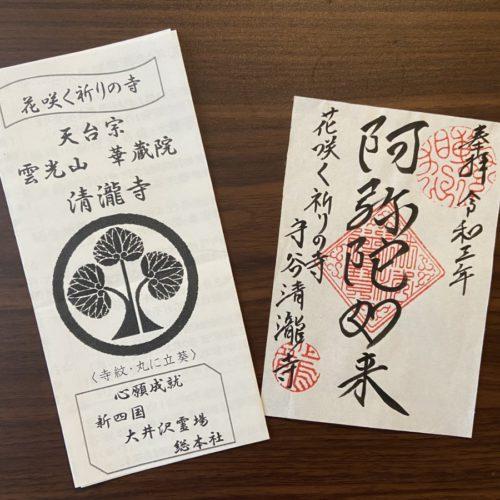 花咲く祈りの寺
天台宗
雲光山 華蔵院
清瀧寺
〈寺紋・丸に立葵〉
心願成就
新四国
大井沢霊場
総本社
奉拝 令和三年
阿弥陀如来
花咲く祈りの寺
守谷清瀧寺